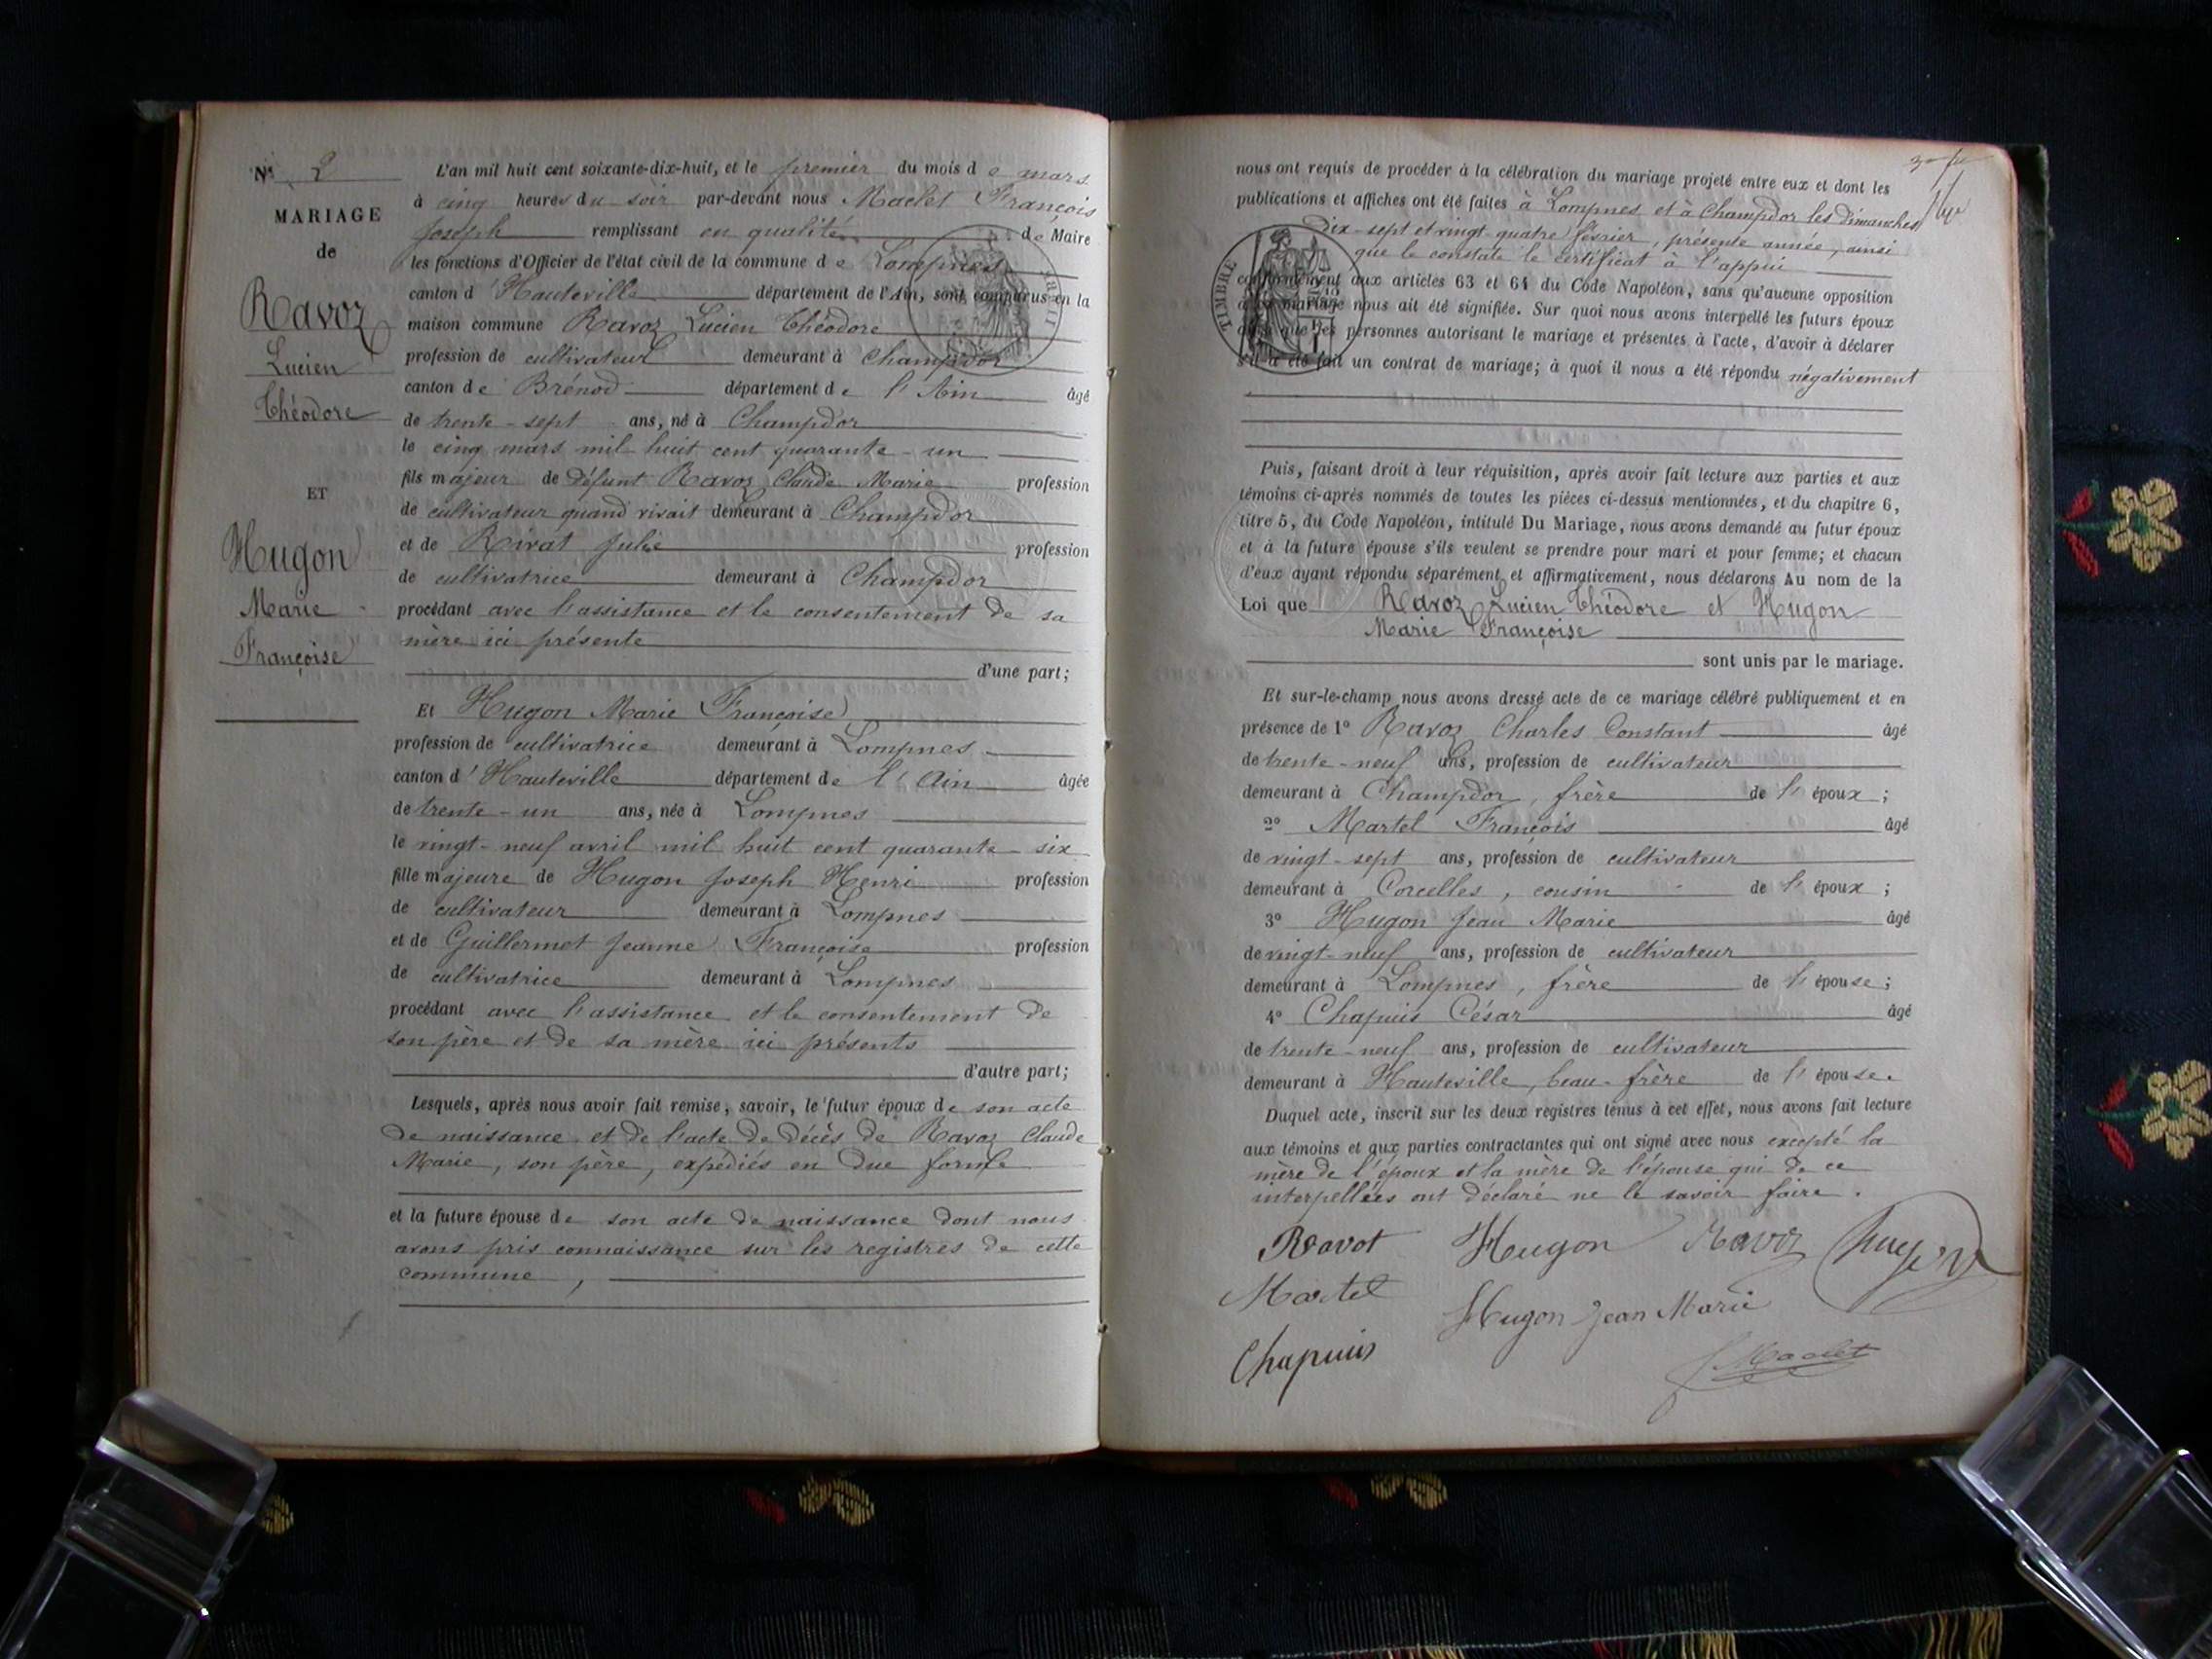 N° 2
MARIAGE
de
Ravoz
Lucien
Théodore
ET
Hugon
Marie
Françoise
L'an mil huit cent soixante-dix-huit, et le premier du mois d e mars
à cinq heures du soir par-devant nous Maclet François
Joseph remplissant en qualité de Maire
les fonctions d'Officier de l'état civil de la commune d e Lompnes
canton d' Hauteville département de l'Ain, sont comparus en la
maison commune Ravoz Lucien Théodore
profession de cultivateur demeurant à Champdor
canton de Brénod département de l'Ain âgé
de trente-sept ans, né à Champdor
le cinq mars mil huit cent quarante-un
fils majeur de défunt Ravoz Claude Marie profession
de cultivateur quand vivait demeurant à Champdor
et de Rivat Julie profession
de cultivatrice demeurant à Champdor
procédant avec l'assistance et le consentement de sa
mère ici présente
d'une part;
Et Hugon Marie Françoise
profession de cultivatrice demeurant à Lompnes
canton d' Hauteville département de l'Ain âgée
de trente-un ans, née à Lompnes
le vingt-neuf avril mil huit cent quarante-six
fille majeure de Hugon Joseph Henri profession
de cultivateur demeurant à Lompnes
et de Guillermet Jeanne Françoise profession
de cultivatrice demeurant à Lompnes
procédant avec l'assistance et le consentement de
son père et de sa mère ici présents
d'autre part;
Lesquels, après nous avoir fait remise, savoir, le futur époux de son acte
de naissance et de l'acte de décès de Ravoz Claude
Marie, son père, expédiés en due forme
et la future épouse de son acte de naissance dont nous
avons pris connaissance sur les registres de cette
commune,
nous ont requis de procéder à la célébration du mariage projeté entre eux et dont les
publications et affiches ont été faites à Lompnes et à Champdor les dimanches
dix-sept et vingt-quatre février, présente année, ainsi
que le constate le certificat à l'appui
TIMBRE
conformément aux articles 63 et 64 du Code Napoléon, sans qu'aucune opposition
à ce mariage nous ait été signifiée. Sur quoi nous avons interpellé les futurs époux
ainsi que les personnes autorisant le mariage et présentes à l'acte, d'avoir à déclarer
s'il a été fait un contrat de mariage; à quoi il nous a été répondu négativement
Puis, faisant droit à leur réquisition, après avoir fait lecture aux parties et aux
témoins ci-après nommés de toutes les pièces ci-dessus mentionnées, et du chapitre 6,
titre 5, du Code Napoléon, intitulé Du Mariage, nous avons demandé au futur époux
et à la future épouse s'ils veulent se prendre pour mari et pour femme; et chacun
d'eux ayant répondu séparément et affirmativement, nous déclarons Au nom de la
Loi que Ravoz Lucien Théodore et Hugon
Marie Françoise
sont unis par le mariage.
Et sur-le-champ nous avons dressé acte de ce mariage célébré publiquement et en
présence de 1° Ravoz Charles Constant âgé
de trente-neuf ans, profession de cultivateur
demeurant à Champdor, frère de l'époux;
2° Martel François âgé
de vingt-sept ans, profession de cultivateur
demeurant à Corcelles, cousin de l'époux;
3° Hugon Jean Marie âgé
de vingt-neuf ans, profession de cultivateur
demeurant à Lompnes, frère de l'épouse;
4° Chapuis César âgé
de trente-neuf ans, profession de cultivateur
demeurant à Hauteville, beau-frère de l'épouse.
Duquel acte, inscrit sur les deux registres tenus à cet effet, nous avons fait lecture
aux témoins et aux parties contractantes qui ont signé avec nous excepté la
mère de l'époux et la mère de l'épouse qui de ce
interpellées ont déclaré ne le savoir faire.
Ravot Hugon Ravoz
Martel
Hugon Jean Marie
Chapuis
Maclet